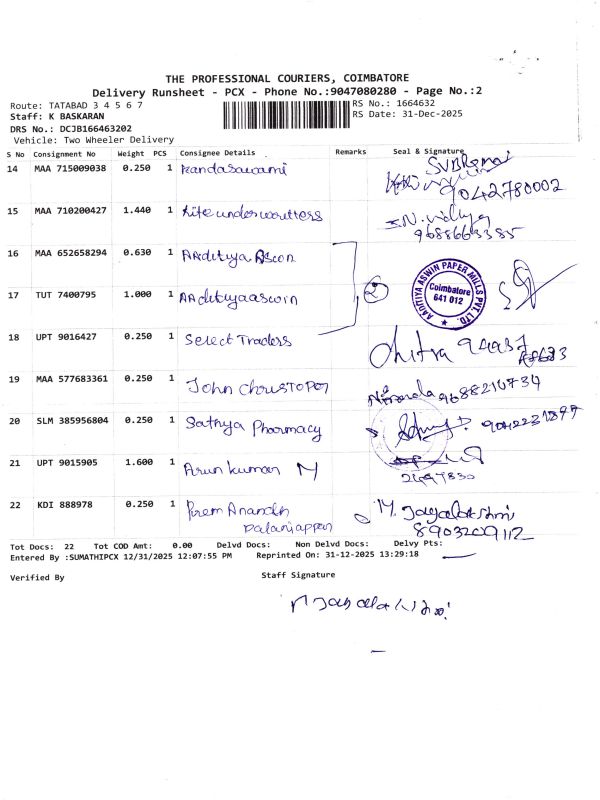 THE PROFESSIONAL COURIERS, COIMBATORE
Delivery Runsheet - PCX - Phone No.:9047080280 - Page No.:2
Route: TATABAD 3 4 5 6 7
RS No.: 1664632
Staff: K BASKARAN
RS Date: 31-Dec-2025
DRS No.: DCJB166463202
Vehicle: Two Wheeler Delivery
S No Consignment No Weight PCS Consignee Details Remarks Seal & Signature
14 MAA 715009038 0.250 1 kandasawami
9042780002
15 MAA 710200427 1.440 1
S.N. vidya
9688663385
16 MAA 652658294 0.630 1 AAditya
17 TUT 7400795 1.000 1 AAdityaaswin
2
AADITIYA ASWIN PAPER MILLS PVT. LTD.
Coimbatore
641 012
18 UPT 9016427 0.250 1 Select Traders
Chitra
19 MAA 577683361 0.250 1 John
9688216734
20 SLM 385956804 0.250 1 Sathya Pharmacy
9042231877
21 UPT 9015905 1.600 1 Arun kumar M
2497830
22 KDI 888978 0.250 1 Prem Anandh
Palaniappan
M. Jayalakshmi
8903209112
Tot Docs: 22 Tot COD Amt: 0.00 Delvd Docs: Non Delvd Docs: Delvy Pts:
Entered By :SUMATHIPCX 12/31/2025 12:07:55 PM Reprinted On: 31-12-2025 13:29:18
Verified By Staff Signature